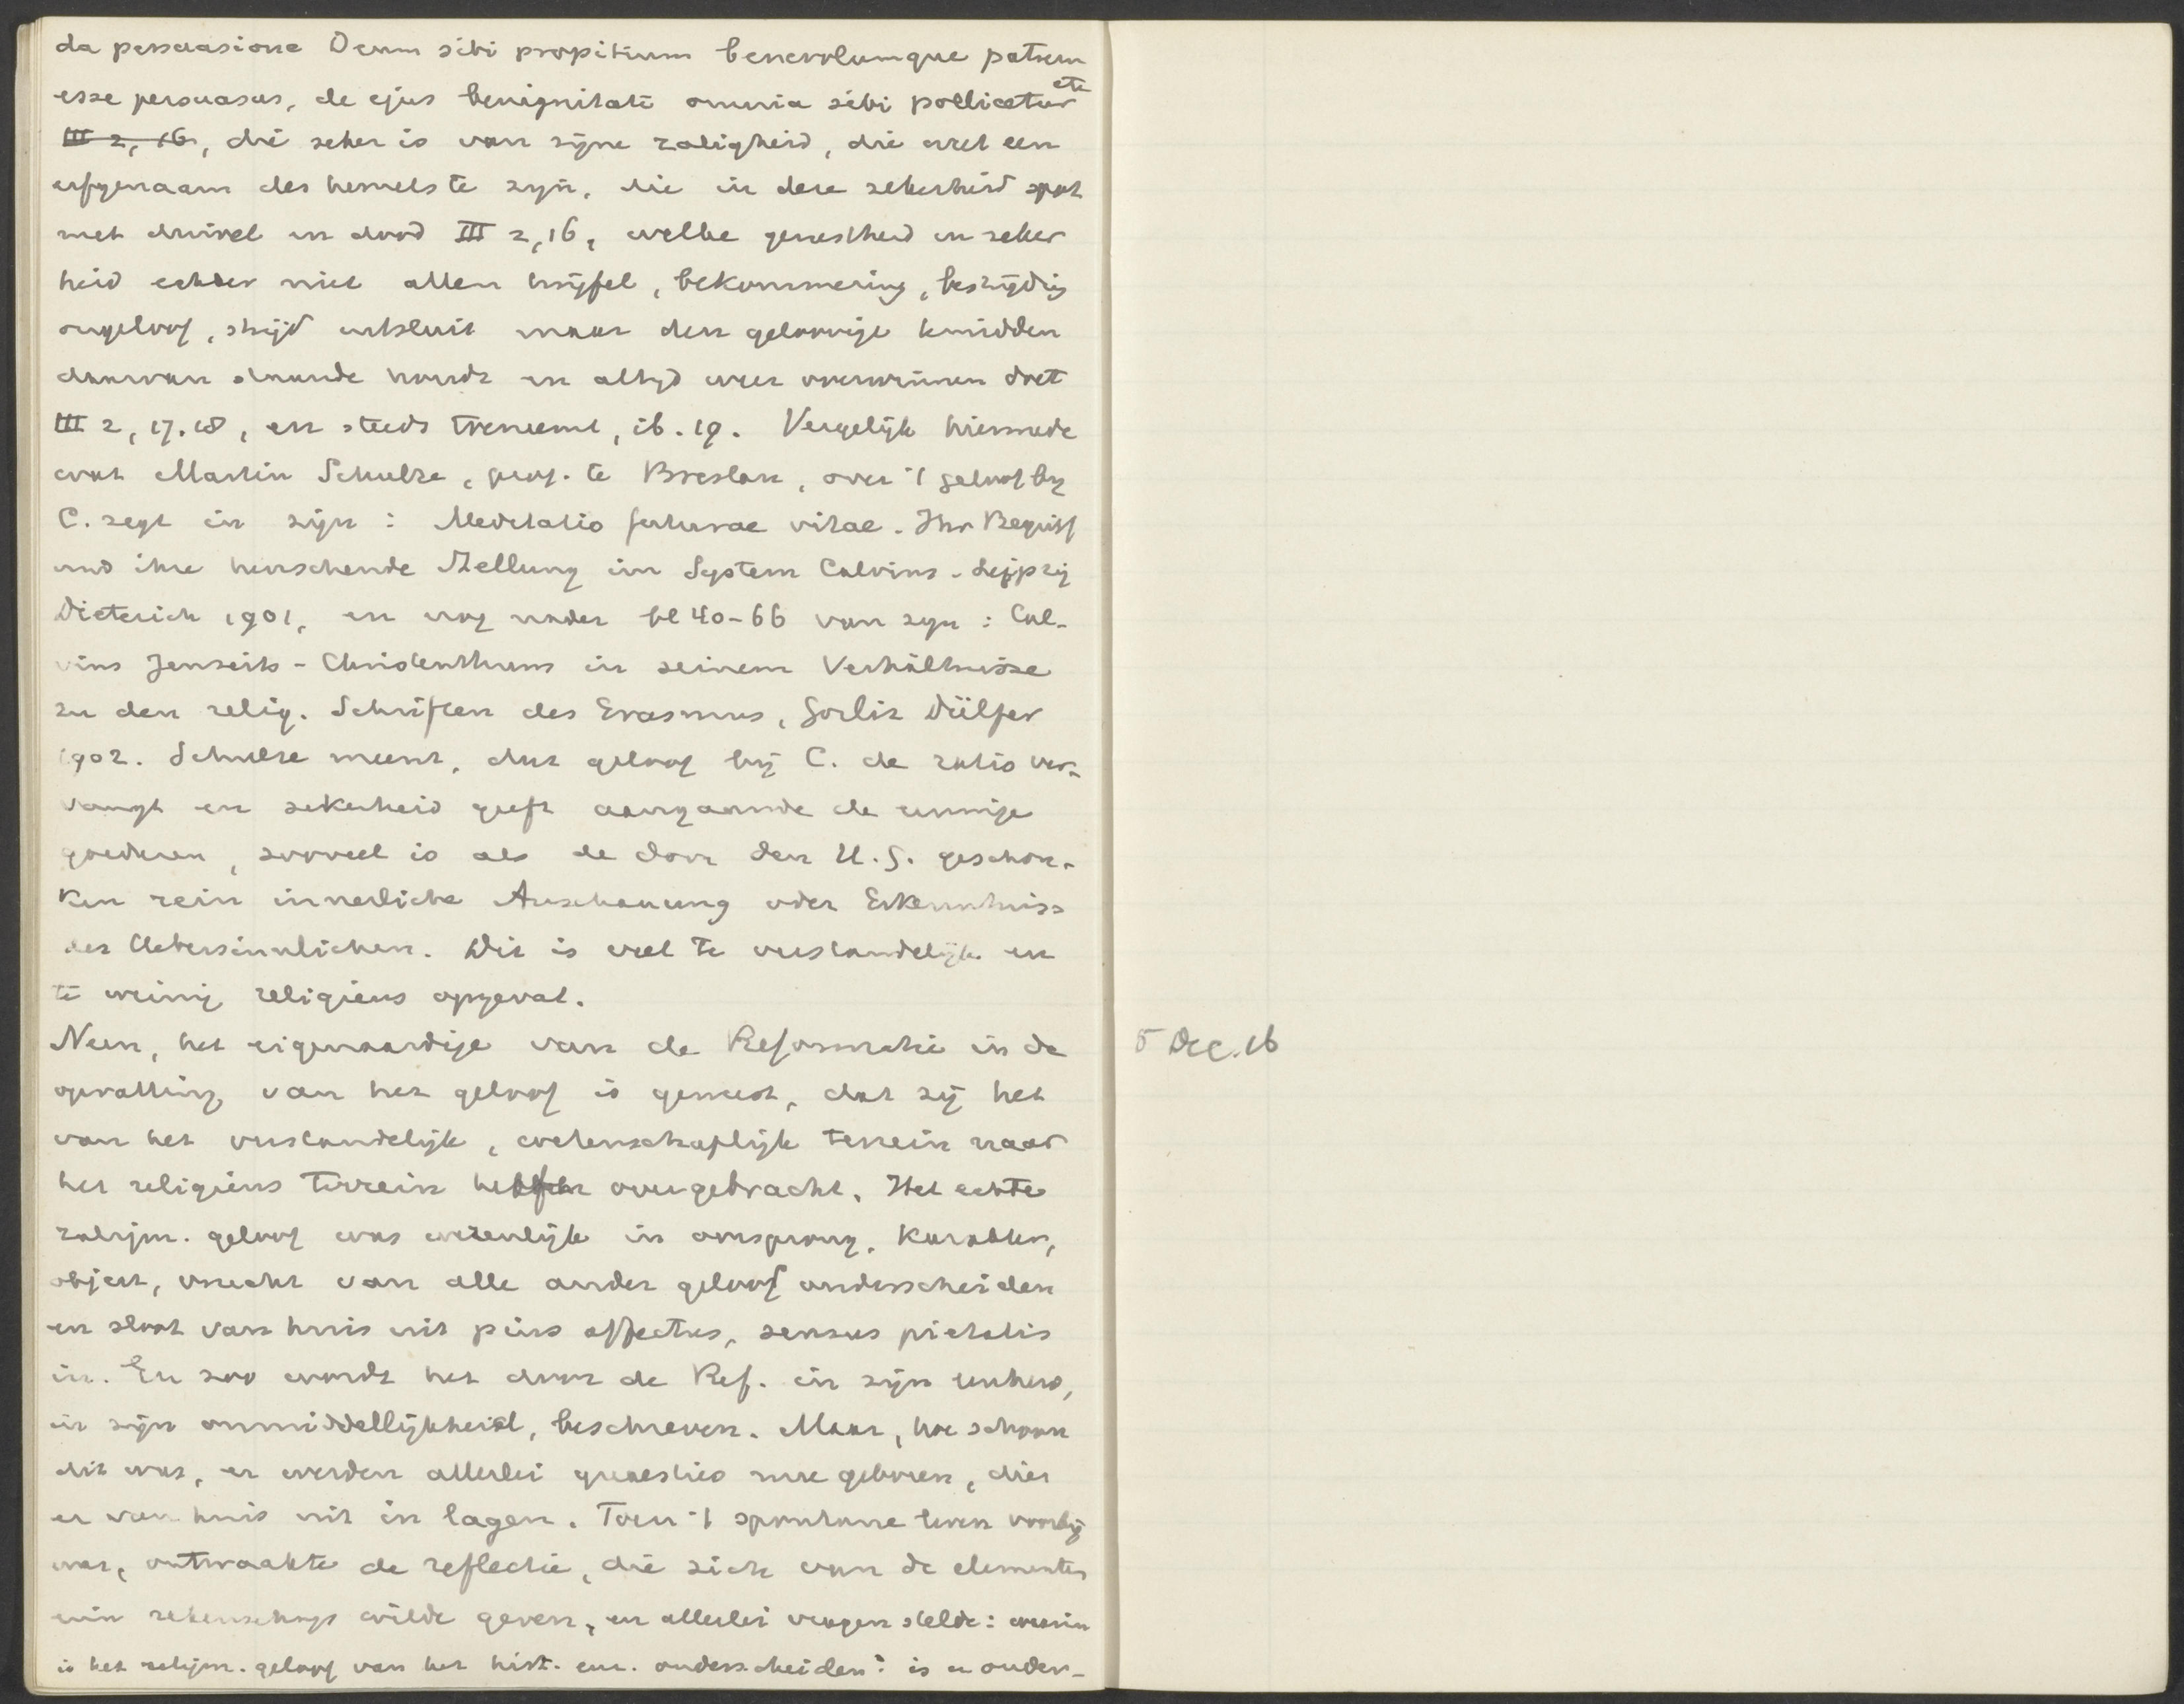 da persuasione Deum sibi propitium benevolumque patrem
esse persuasus, de ejus benignitate omnia sibi pollicetur etc
III 2, 16, die zeker is van zijne zaligheid, die weet een
erfgenaam des hemels te zijn, die in deze zekerheid spot
met duivel en dood III 2, 16, welke gerustheid en zeker
heid echter niet allen twijfel, bekommering, bestrijding
ongeloof, strijd uitsluit maar den geloovige temidden
daarvan staande houdt en altijd weer overwinnen doet
III 2, 17. 18, en steeds toeneemt, ib. 19. Vergelijk hiermede
wat Martin Schulze, prof. te Breslau, over 't geloof bij
C. zegt in zijn : Meditatio futurae vitae. Ihr Begriff
und ihre herrschende Stellung im System Calvins. Leipzig
Dieterich 1901, en nog nader bl 40-66 van zijn : Cal-
vins Jenseits-Christenthum in seinem Verhältnisse
zu den relig. Schriften des Erasmus, Görlitz Dülfer
1902. Schulze meent, dat geloof bij C. de ratio ver-
vangt en zekerheid geeft aangaande de eeuwige
goederen, zooveel is als de door den H. G. geschon-
ken rein innerliche Anschauung oder Erkenntniss
des Uebersinnlichen. Dit is veel te verstandelijk en
te weinig religieus opgevat.
Neen, het eigenaardige van de Reformatie in de
opvatting van het geloof is geweest, dat zij het
van het verstandelijk, wetenschaplijk terrein naar
het religieus terrein overgebracht. Het echte
zaligm. geloof was wezenlijk in oorsprong, karakter,
object, vrucht van alle ander geloof onderscheiden
en sloot van huis uit pius affectus, sensus pietatis
in. En zoo wordt het door de Ref. in zijn eenheid,
in zijn onmiddellijkheid, beschreven. Maar, hoe schoon
dit was, er werden allerlei quaesties mee geboren, die
er van huis uit in lagen. Toen 't spontane leven voorbij
was, ontwaakte de reflectie, die zich van de elementen
rekenschap wilde geven, en allerlei vragen stelde : waarin
is het zaligm. geloof van het hist. enz. onderscheiden? is er onder-
5 Dec. 16